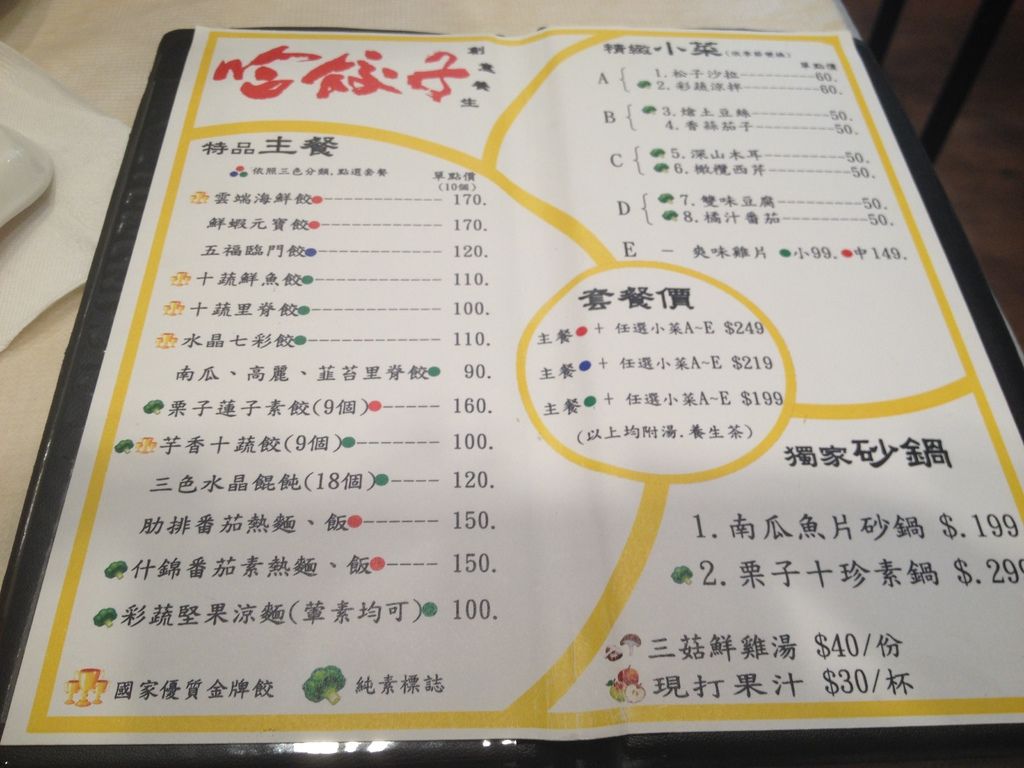 哈餃子
創意養生
特品主餐
依照三色分類.點選套餐
單點價
(10個)
雲端海鮮餃 170.
鮮蝦元寶餃 170.
五福臨門餃 120.
十蔬鮮魚餃 110.
十蔬里脊餃 100.
水晶七彩餃 110.
南瓜、高麗、韮苔里脊餃 90.
栗子蓮子素餃(9個) 160.
芋香十蔬餃(9個) 100.
三色水晶餛飩(18個) 120.
肋排番茄熱麵、飯 150.
什錦番茄素熱麵、飯 150.
彩蔬堅果涼麵(葷素均可) 100.
國家優質金牌餃
純素標誌
精緻小菜
單點價
A { 1. 松子沙拉 60.
2. 彩蔬涼拌 60.
B { 3. 燴土豆絲 50.
4. 香蒜茄子 50.
C { 5. 深山木耳 50.
6. 橄欖西芹 50.
D { 7. 雙味豆腐 50.
8. 橘汁番茄 50.
E － 爽味雞片 小99. 中149.
套餐價
主餐 + 任選小菜A~E $249
主餐 + 任選小菜A~E $219
主餐 + 任選小菜A~E $199
(以上均附湯.養生茶)
獨家砂鍋
1. 南瓜魚片砂鍋 $.199
2. 栗子十珍素鍋 $.299
三菇鮮雞湯 $40/份
現打果汁 $30/杯